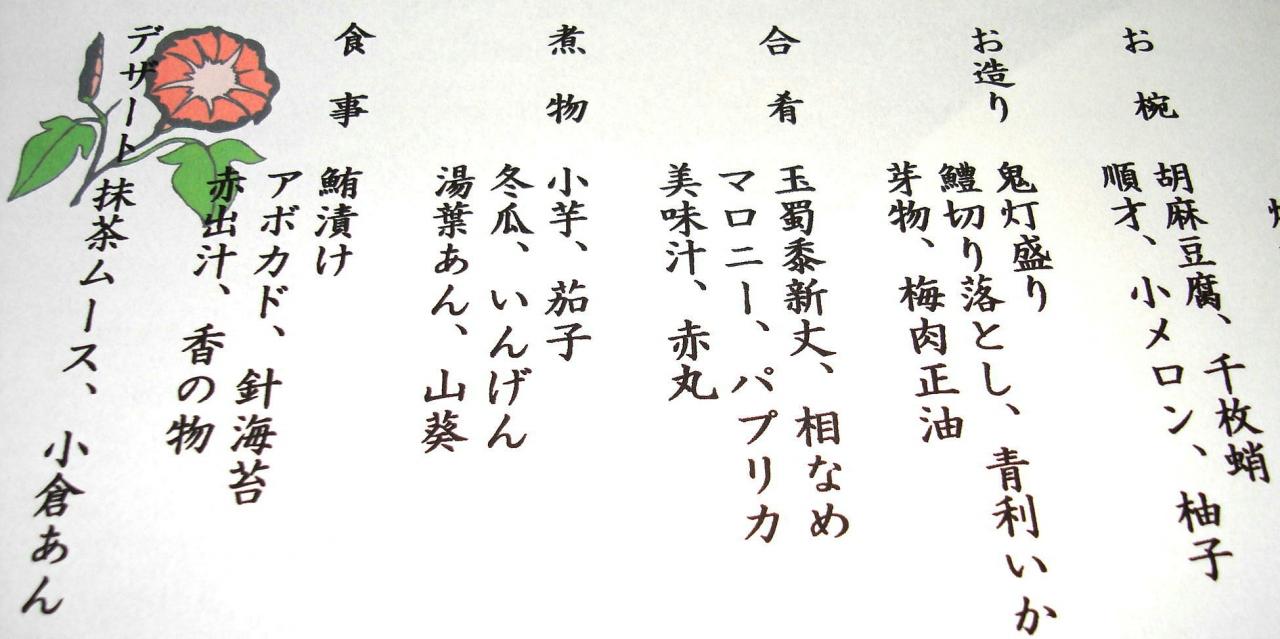 お椀
胡麻豆腐、千枚蛸
順才、小メロン、柚子
お造り
鬼灯盛り
鱧切り落とし、青利いか
芽物、梅肉正油
合肴
玉蜀黍新丈、相なめ
マロニー、パプリカ
美味汁、赤丸
煮物
小芋、茄子
冬瓜、いんげん
湯葉あん、山葵
食事
鮪漬け
アボカド、針海苔
赤出汁、香の物
デザート
抹茶ムース、小倉あん